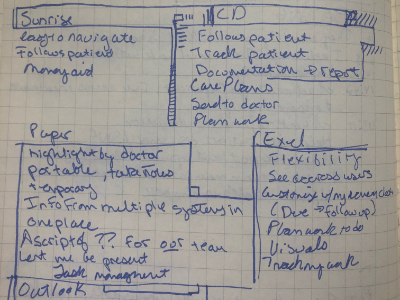 Sunrise
easy to navigate
Follows patient
Money aid
CD
Follows patient
Track patient
Documentation → report
Care Plans
Send to doctor
Plan work
Paper
Highlight by doctor
portable, take notes
temporary
Info From multiple systems in
one place
A script of ?? For our team
Let me be present
Task managment
Excel
Flexibility
See across users
Customize w/ my
(Due → Follow up)
Plan work to do
Visuals
Track my work
Outlook